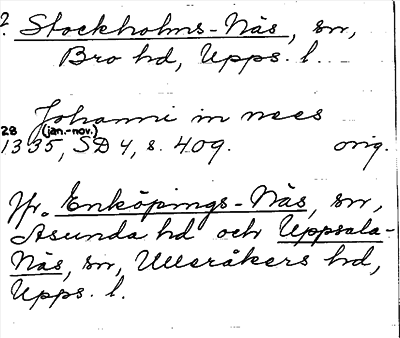 ? Stockholms-Näs, sn,
Bro hd, Upps. l.
Johanni in nees
28 (jan.-nov.)
1335, SD 4, s. 409. orig.
Jfr. Enköpings-Näs, sn,
Asunda hd och Uppsala-
Näs, sn, Ulleråkers hd,
Upps. l.